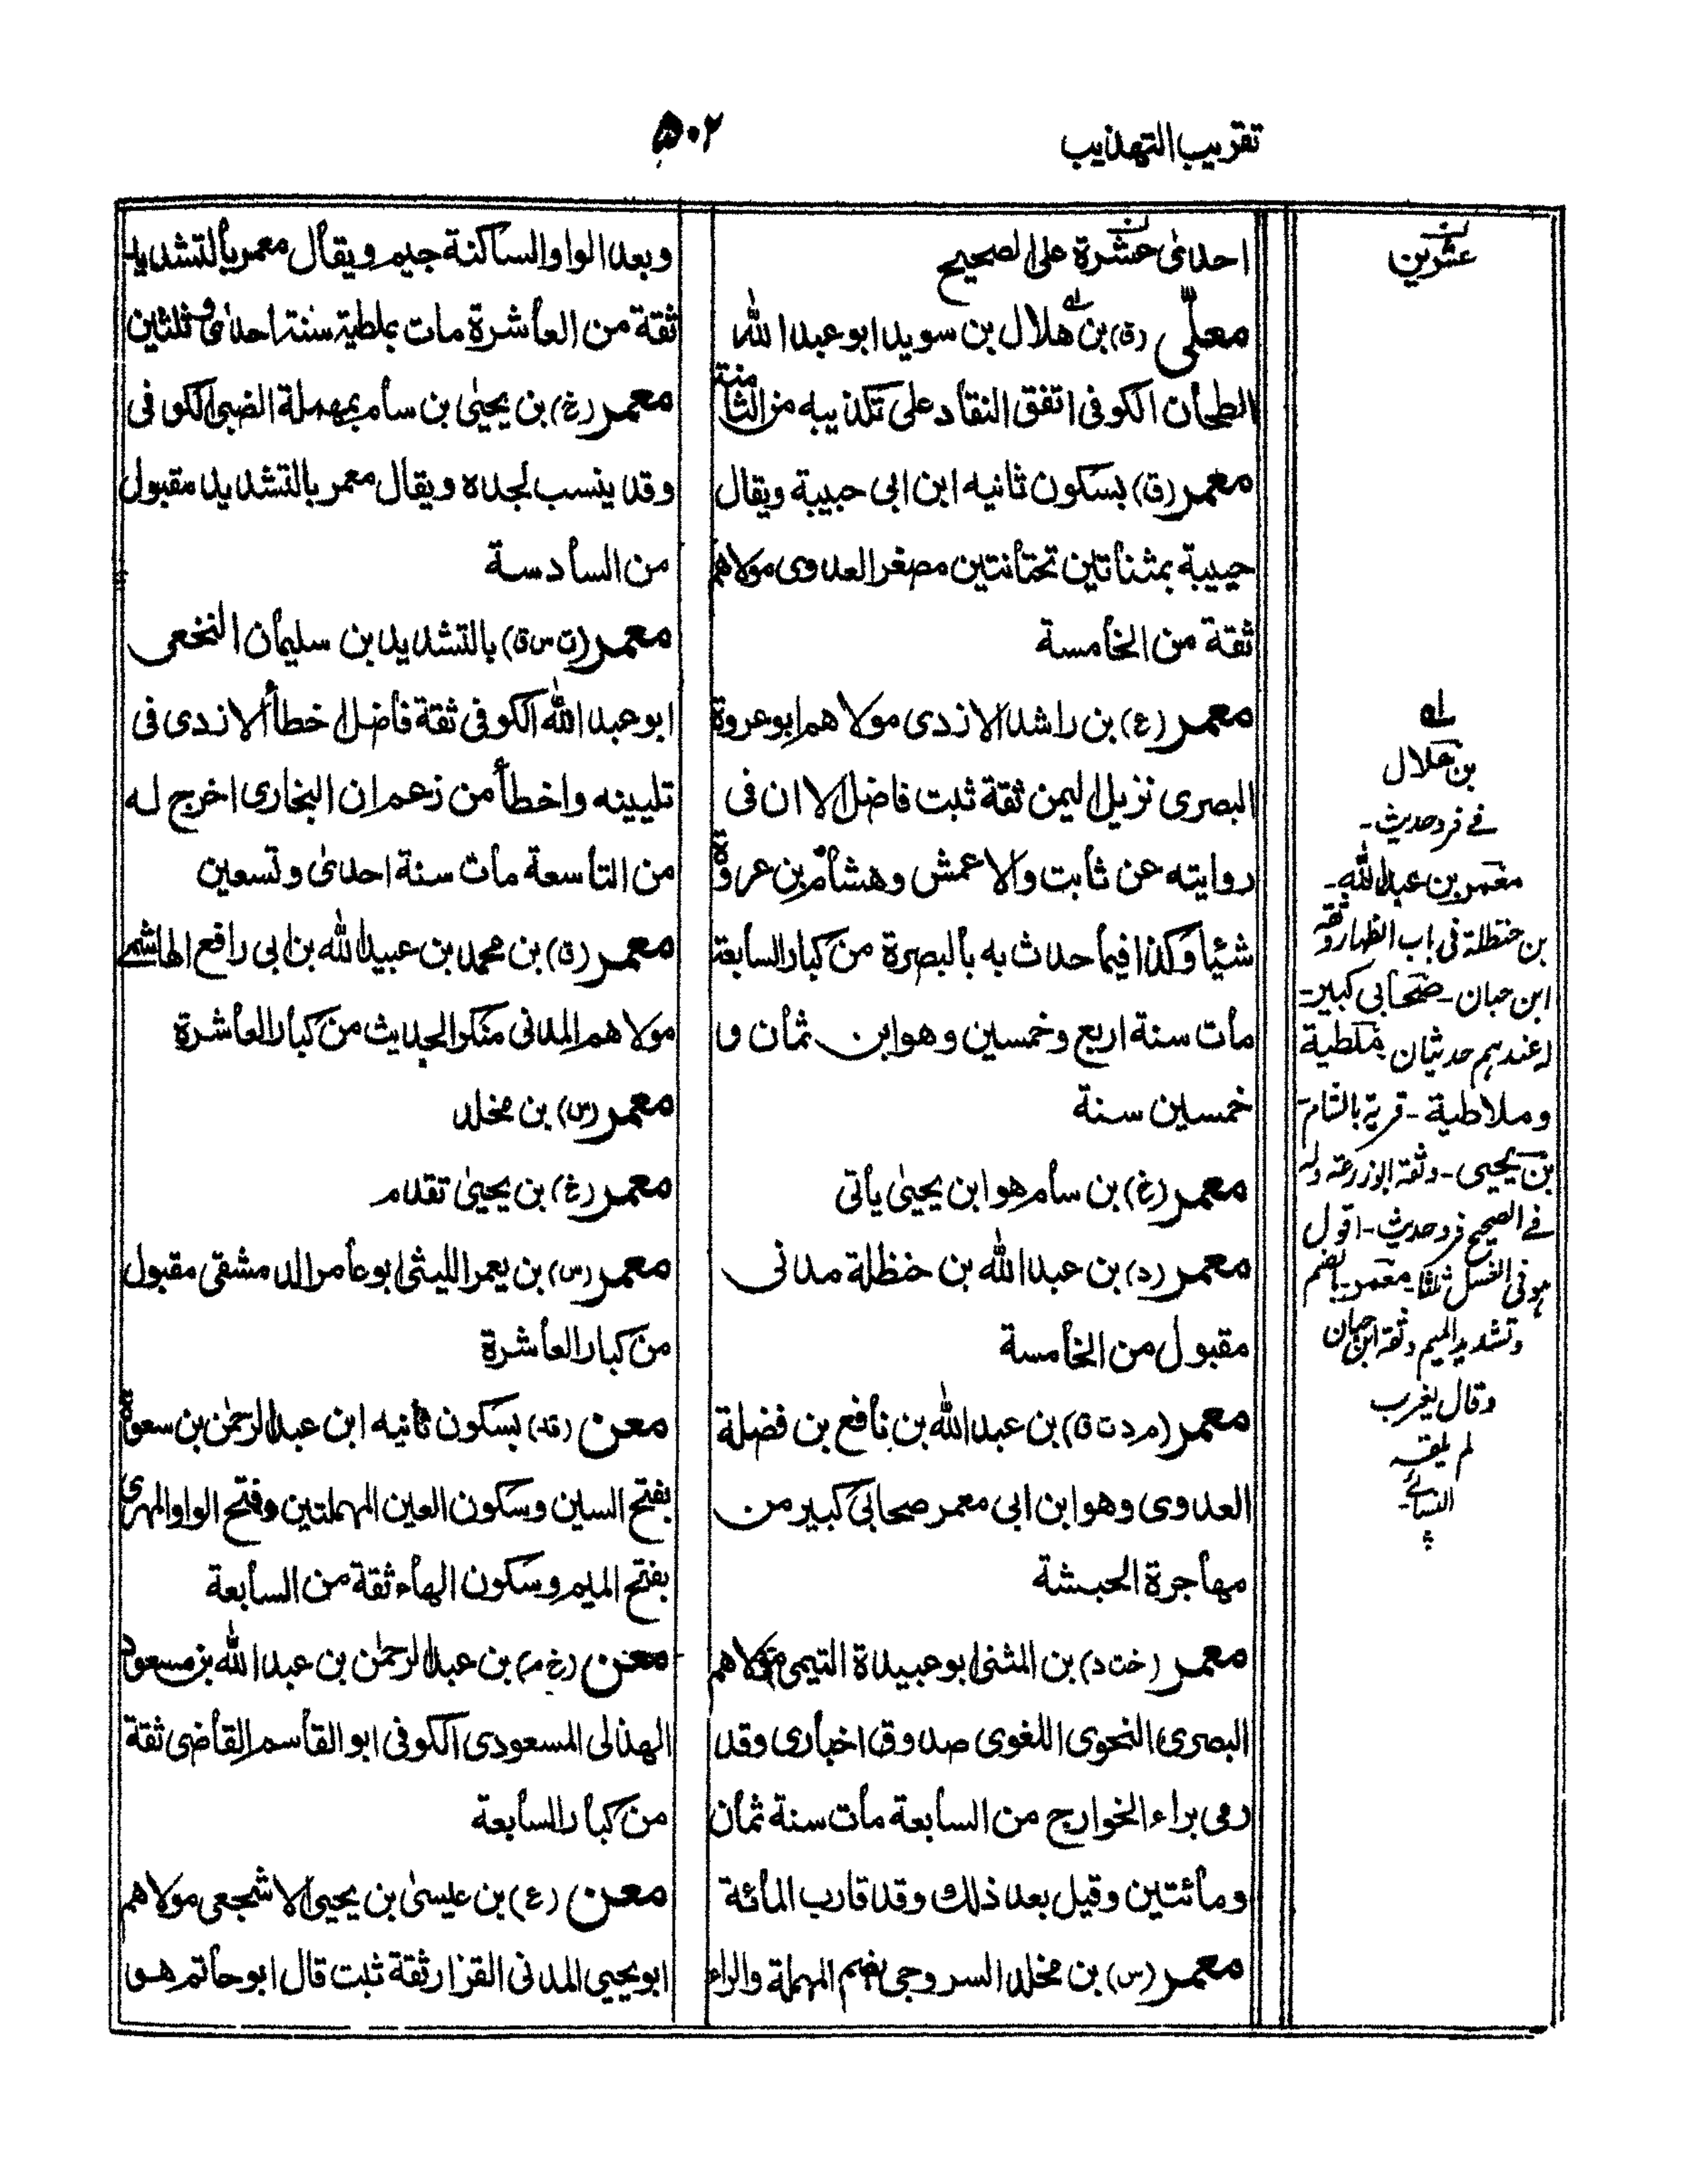 تقریب التهذیب
۵۰۲
احدیٰ عشرة علی الصحیح
معلّی (ق) بن هلال بن سوید ابو عبد الله
الطحان الکوفی اتفق النقاد علی تکذیبه من الثامنة
معمر (ق) بسکون ثانیه ابن ابی حبیبة ویقال
حییبة بمثناتین تحتانتین مصغر العدوی مولاهم
ثقة من الخامسة
معمر (ع) بن راشد الازدی مولاهم ابو عروة
البصری نزیل الیمن ثقة ثبت فاضل الا ان فی
روایته عن ثابت والاعمش وهشام بن عروة
شیئا وکذا فیما حدث به بالبصرة من کبار السابعة
مات سنة اربع وخمسین وهو ابن ثمان و
خمسین سنة
معمر (غ) بن سام هو ابن یحییٰ یأتی
معمر (د) بن عبد الله بن حنظلة مدنی
مقبول من الخامسة
معمر (م د ت ق) بن عبد الله بن نافع بن فضلة
العدوی وهو ابن ابی معمر صحابی کبیر من
مهاجرة الحبشة
معمر (خت د) بن المثنی ابو عبیدة التیمی مولاهم
البصری النحوی اللغوی صدوق اخباری وقد
رمی براء الخوارج من السابعة مات سنة ثمان
ومائتین وقیل بعد ذلك وقد قارب المائة
معمر (س) بن مخلد السروجی بضم المهملة والراء
وبعد الواو الساکنة جیم ویقال معمر بالتشدید
ثقة من العاشرة مات بملطیة سنة احدی وثلثین
معمر (غ) بن یحییٰ بن سام بمهملة الضبی الکوفی
وقد ینسب لجده ویقال معمر بالتشدید مقبول
من السادسة
معمر (ت س ق) بالتشدید بن سلیمان النخعی
ابو عبد الله الکوفی ثقة فاضل اخطأ الازدی فی
تلیینه واخطأ من زعم ان البخاری اخرج له
من التاسعة مات سنة احدیٰ وتسعین
معمر (ق) بن محمد بن عبید الله بن ابی رافع الهاشمی
مولاهم المدنی منکر الحدیث من کبار العاشرة
معمر (س) بن مخلد
معمر (غ) بن یحییٰ تقدم
معمر (س) بن یعمر اللیثی ابو عامر الدمشقی مقبول
من کبار العاشرة
معن (قد) بسکون ثانیه ابن عبد الرحمٰن بن سعوة
بفتح السین وسکون العین المهملتین وفتح الواو المهری
بفتح المیم وسکون الهاء ثقة من السابعة
معن (خ م) بن عبد الرحمٰن بن عبد الله بن مسعود
الهذلی المسعودی الکوفی ابو القاسم القاضی ثقة
من کبار السابعة
معن (ع) بن عیسیٰ بن یحیی الاشجعی مولاهم
ابو یحیی المدنی القزار ثقة ثبت قال ابو حاتم هو
عشرین
بن هلال
فی فرد حدیث۔
معمر بن عبد اللہ۔
بن حنظلة فی باب الظهار وثقه
ابن حبان۔ صحابی کبیر۔
له عندہم حدیثان۔ ملطیة
وملاطیة۔ قریة بالشام۔
بن یحیی۔ وثقہ ابو زرعة وله
فی الصحیح فرد حدیث۔ اقول
ہو فی الغسل ثلثا۔ معمر۔ بالضم
وتشدید المیم وثقہ ابن حبان
وقال یغرب
لم یلقه
النسائی۔